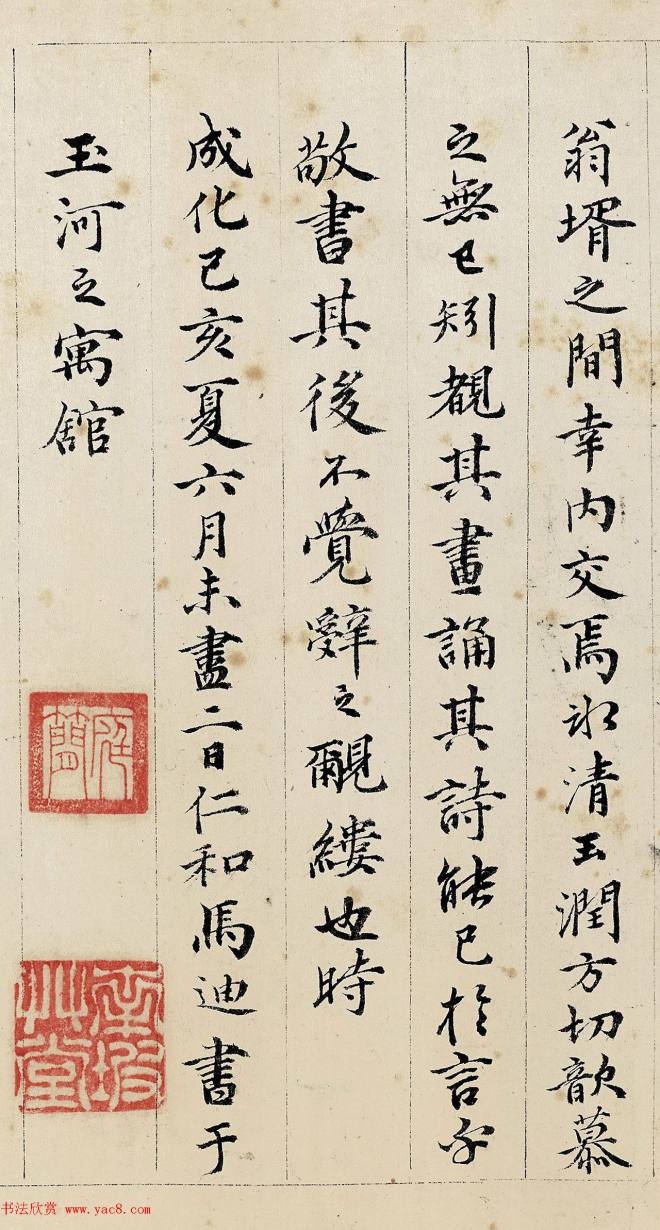 翁壻之間幸内交焉冰清玉潤方切歆慕
之無已矧覩其畫誦其詩能已於言乎
敬書其後不覺辭之覼縷也時
成化己亥夏六月未盡二日仁和馬迪書于
玉河之寓館
草堂
书法欣赏 www.yac8.com